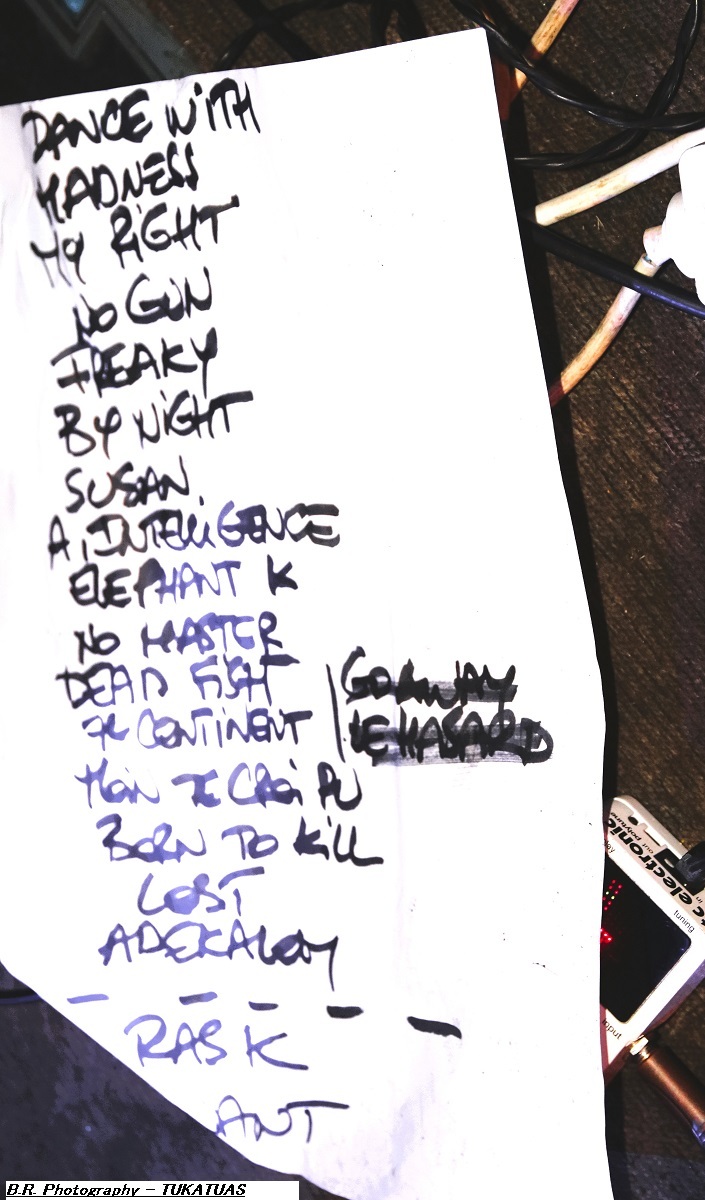 DANCE WITH
MADNESS
MY RIGHT
NO GUN
FREAKY
BY NIGHT
SUSAN.
A. INTELLIGENCE
ELEPHANT K
NO MASTER
DEAD FISH
7e CONTINENT
GO AWAY
LE HASARD
BORN TO KILL
LOST
RASK
ANT
tc electronic
polytune
out
in
tuning
input
B.R. Photography - TUKATUAS